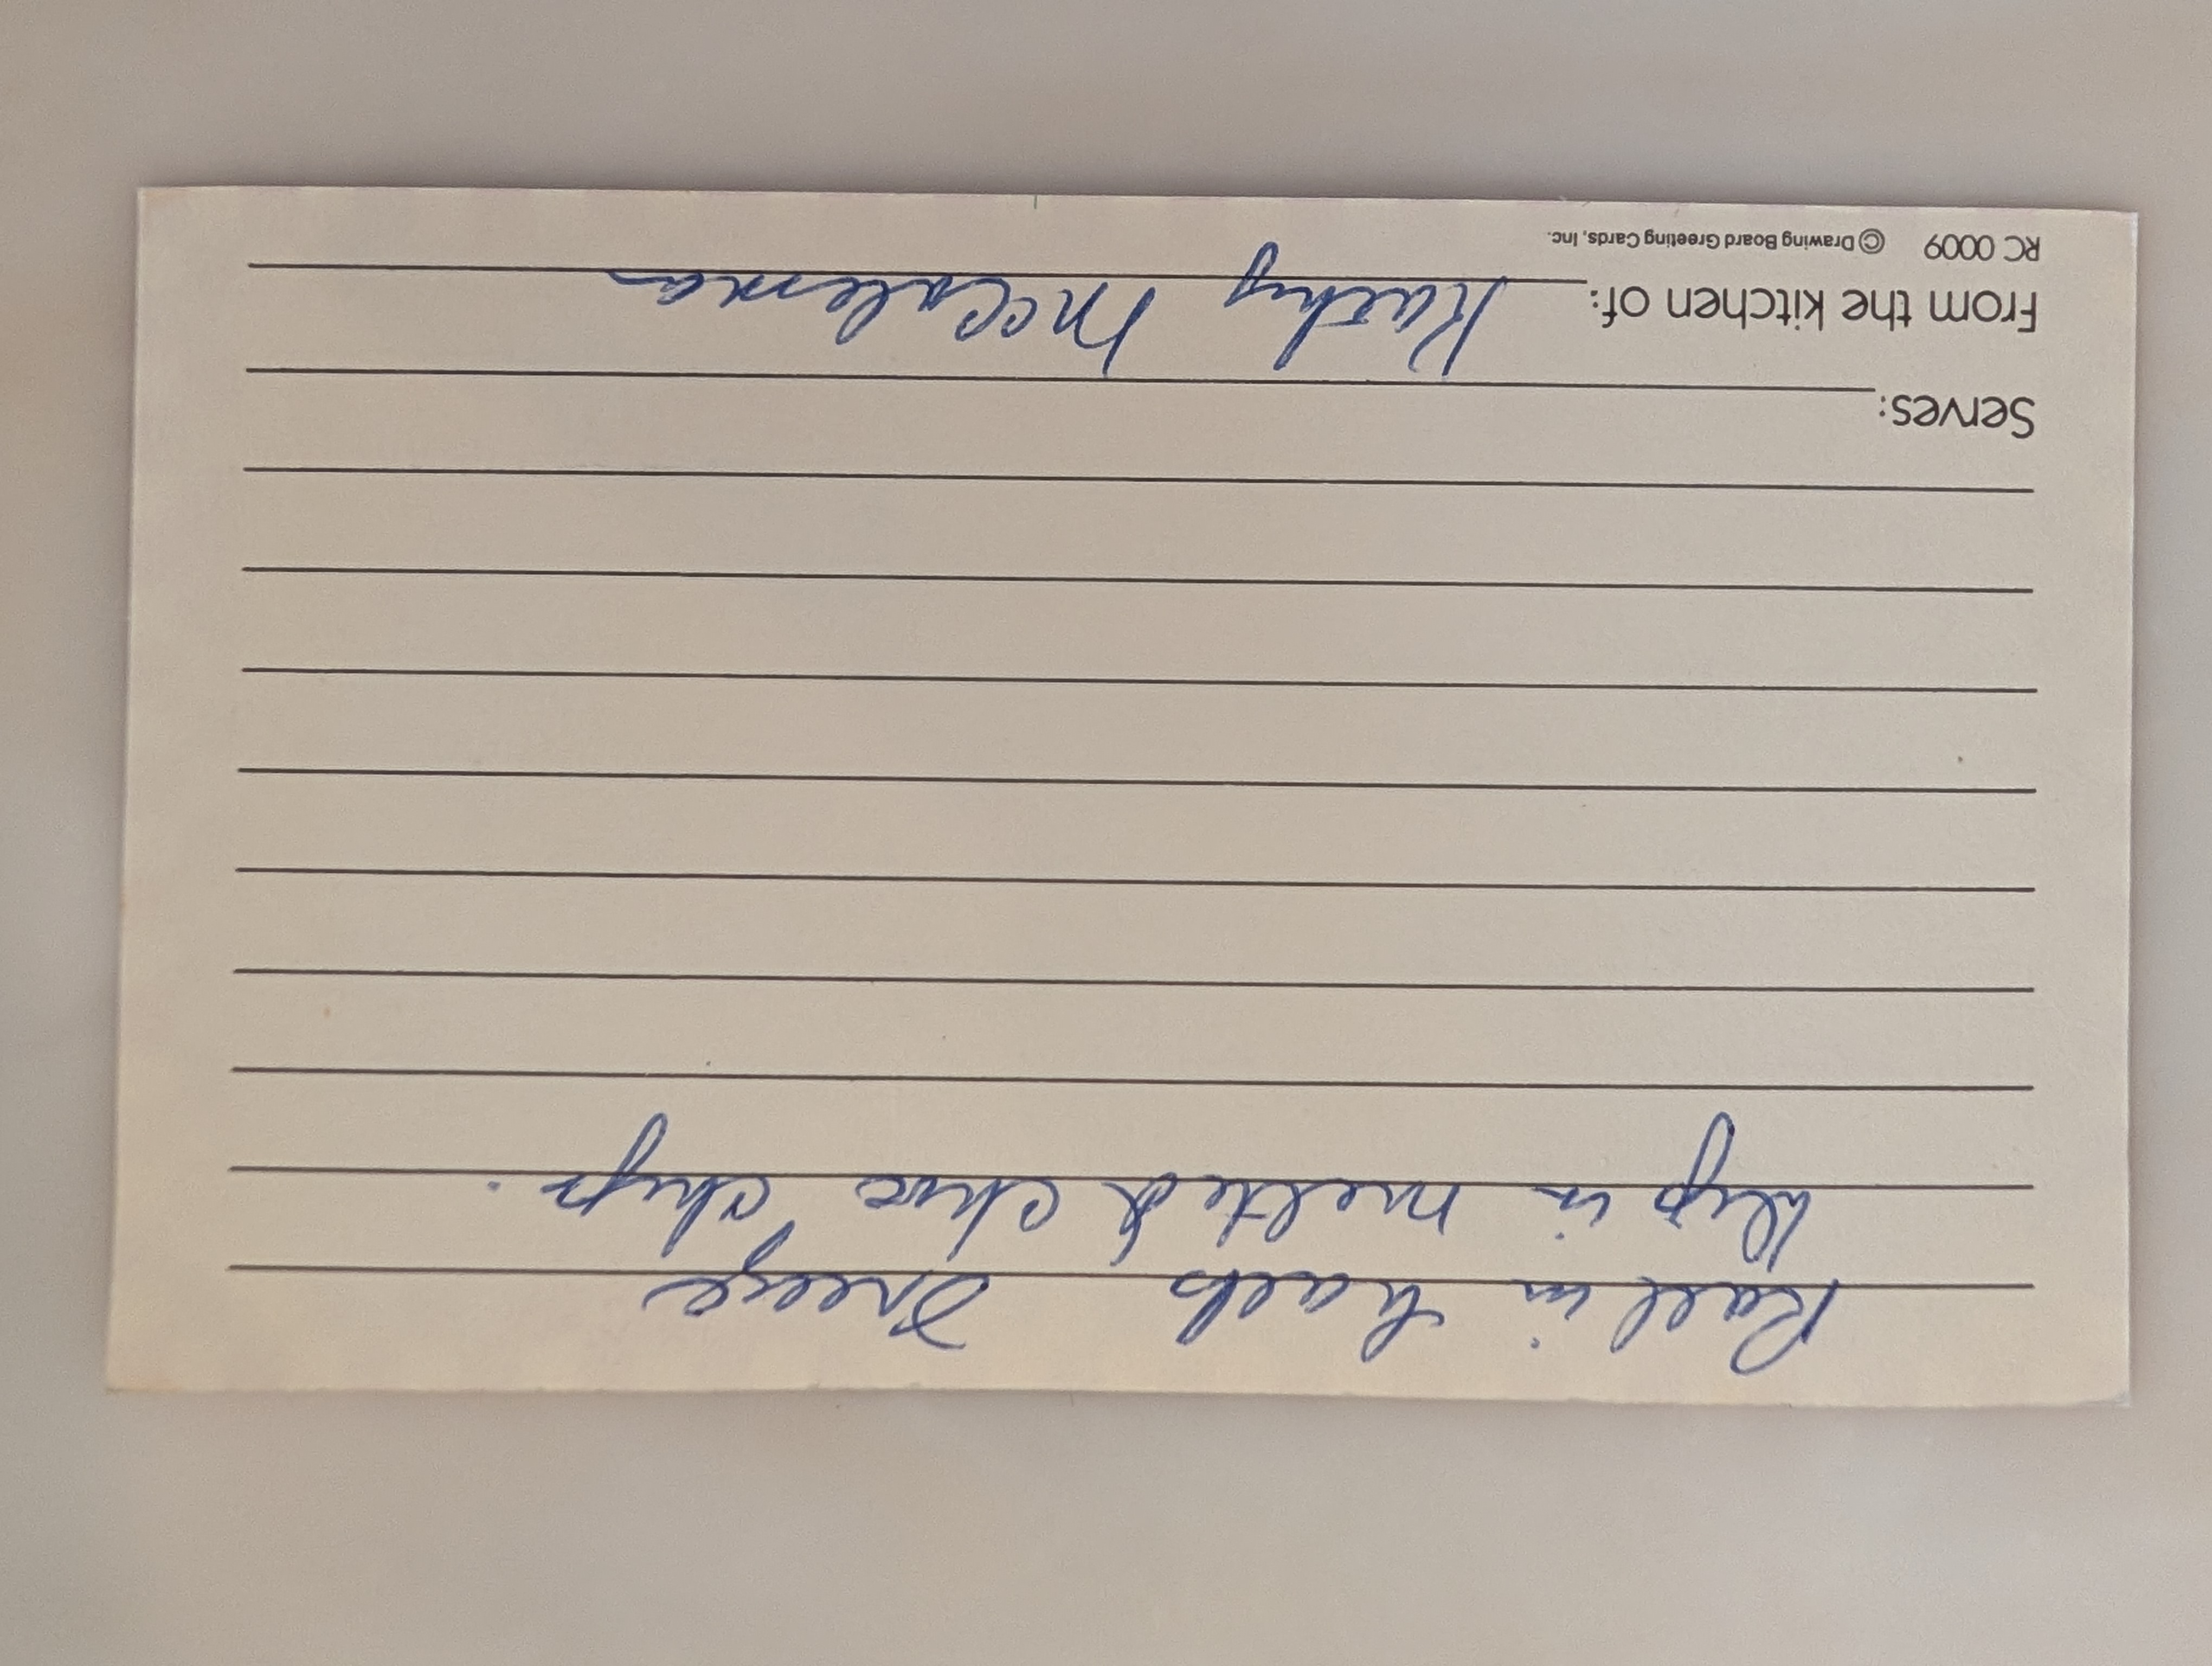 Roll in balls Freeze
Dip in melted choc chips.
Serves:
From the kitchen of: Kathy McCaleman
RC 0009 © Drawing Board Greeting Cards, Inc.